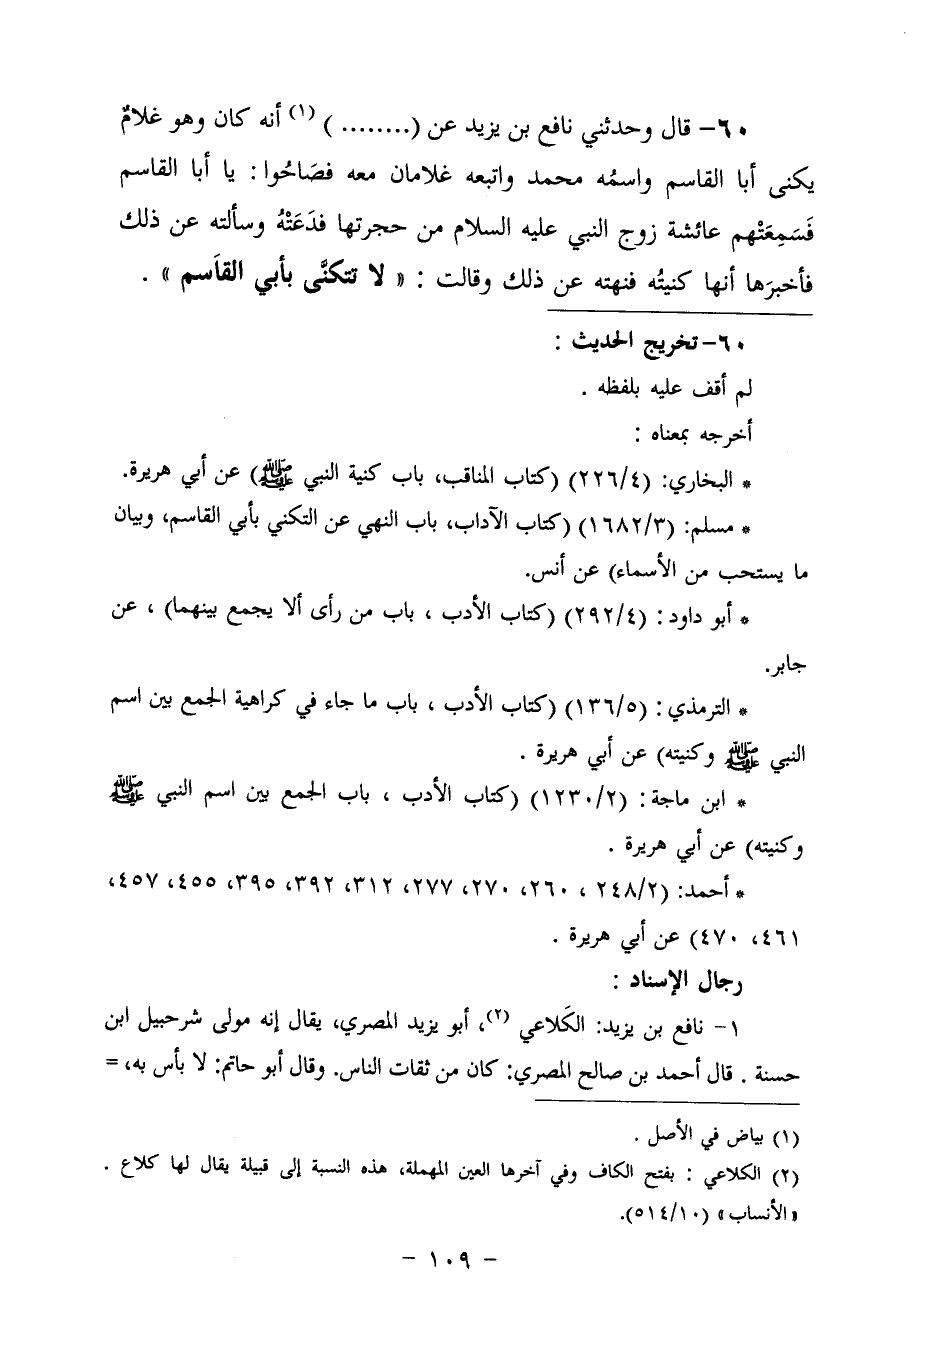 ٦٠- قال وحدثني نافع بن يزيد عن (........) (١) أنه كان وهو غلامٌ
يكنى أبا القاسم واسمُه محمد واتبعه غلامان معه فصَاحُوا : يا أبا القاسم
فَسَمِعَتْهم عائشة زوج النبي عليه السلام من حجرتها فدَعَتْهُ وسألته عن ذلك
فأخبرَها أنها كنيتُه فنهته عن ذلك وقالت : « لا تتكنَّى بأبي القاَسم » .
٦٠- تخريج الحديث :
لم أقف عليه بلفظه .
أخرجه بمعناه :
* البخاري: (٢٢٦/٤) (كتاب المناقب، باب كنية النبي ﷺ) عن أبي هريرة.
* مسلم: (١٦٨٢/٣) (كتاب الآداب، باب النهي عن التكني بأبي القاسم، وبيان
ما يستحب من الأسماء) عن أنس.
* أبو داود : (٢٩٢/٤) (كتاب الأدب ، باب من رأى ألا يجمع بينهما) ، عن
جابر.
* الترمذي : (١٣٦/٥) (كتاب الأدب ، باب ما جاء في كراهية الجمع بين اسم
النبي ﷺ وكنيته) عن أبي هريرة .
* ابن ماجة : (١٢٣٠/٢) (كتاب الأدب ، باب الجمع بين اسم النبي ﷺ
وكنيته) عن أبي هريرة .
* أحمد: (٢٤٨/٢ ، ٢٦٠، ٢٧٠، ٢٧٧، ٣١٢، ٣٩٢، ٣٩٥، ٤٥٥، ٤٥٧،
٤٦١، ٤٧٠) عن أبي هريرة .
رجال الإسناد :
١- نافع بن يزيد: الكَلاعي (٢)، أبو يزيد المصري، يقال إنه مولى شرحبيل ابن
حسنة . قال أحمد بن صالح المصري: كان من ثقات الناس. وقال أبو حاتم: لا بأس به، =
(١) بياض في الأصل .
(٢) الكلاعي : بفتح الكاف وفي آخرها العين المهملة، هذه النسبة إلى قبيلة يقال لها كلاع .
« الأنساب » (٥١٤/١٠).
- ١٠٩ -